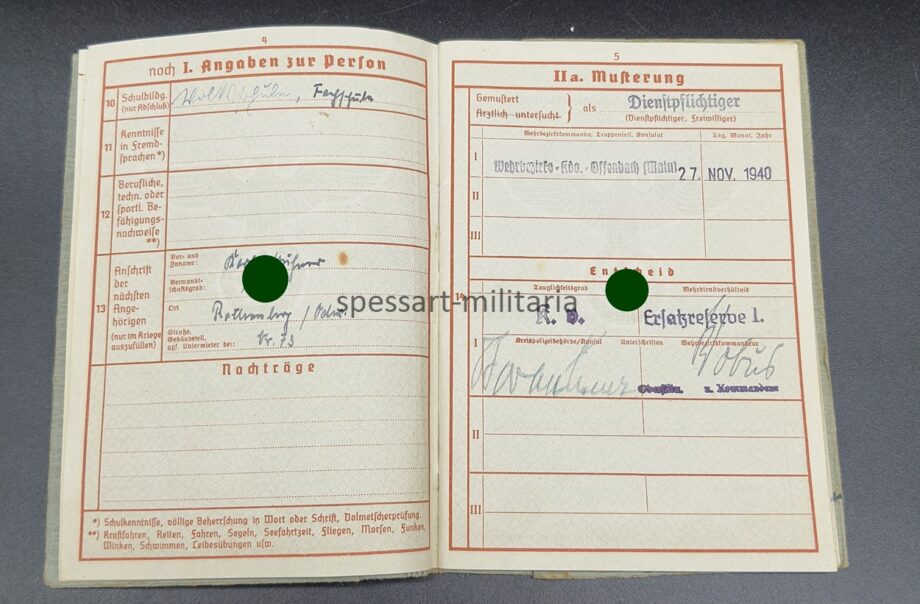 4
noch I. Angaben zur Person
10 Schulbildg. (nur Abschluß) Volksschule, Fachschule
11 Kenntnisse in Fremdsprachen *)
12 Berufliche, techn. oder sportl. Befähigungsnachweise **)
13 Anschrift der nächsten Angehörigen (nur im Kriege auszufüllen)
Vor- und Zuname:
Verwandtschaftsgrad:
Ort Rothenberg / Odw.
Straße, Gebäudeteil, ggf. Untermieter bei: Nr. 73
Nachträge
*) Schulkenntnisse, völlige Beherrschung in Wort oder Schrift, Dolmetscherprüfung.
**) Kraftfahren, Reiten, Fahren, Segeln, Seefahrtzeit, Fliegen, Morsen, Funken,
Winken, Schwimmen, Leibesübungen usw.
5
IIa. Musterung
Gemustert
Ärztlich untersucht
als Dienstpflichtiger
(Dienstpflichtiger, Freiwilliger)
Wehrbezirkskommando, Truppenteil, Konsulat Tag, Monat, Jahr
I Wehrbezirks-Kdo. Offenbach (Main) 27. NOV. 1940
II
III
Entscheid
Tauglichkeitsgrad Wehrdienstverhältnis
14
Ersatzreserve I.
I Kreispolizeibehörde/Konsul Unterschriften Wehrbezirkskommandeur
u. Kommandeur
II
III
spessart-militaria